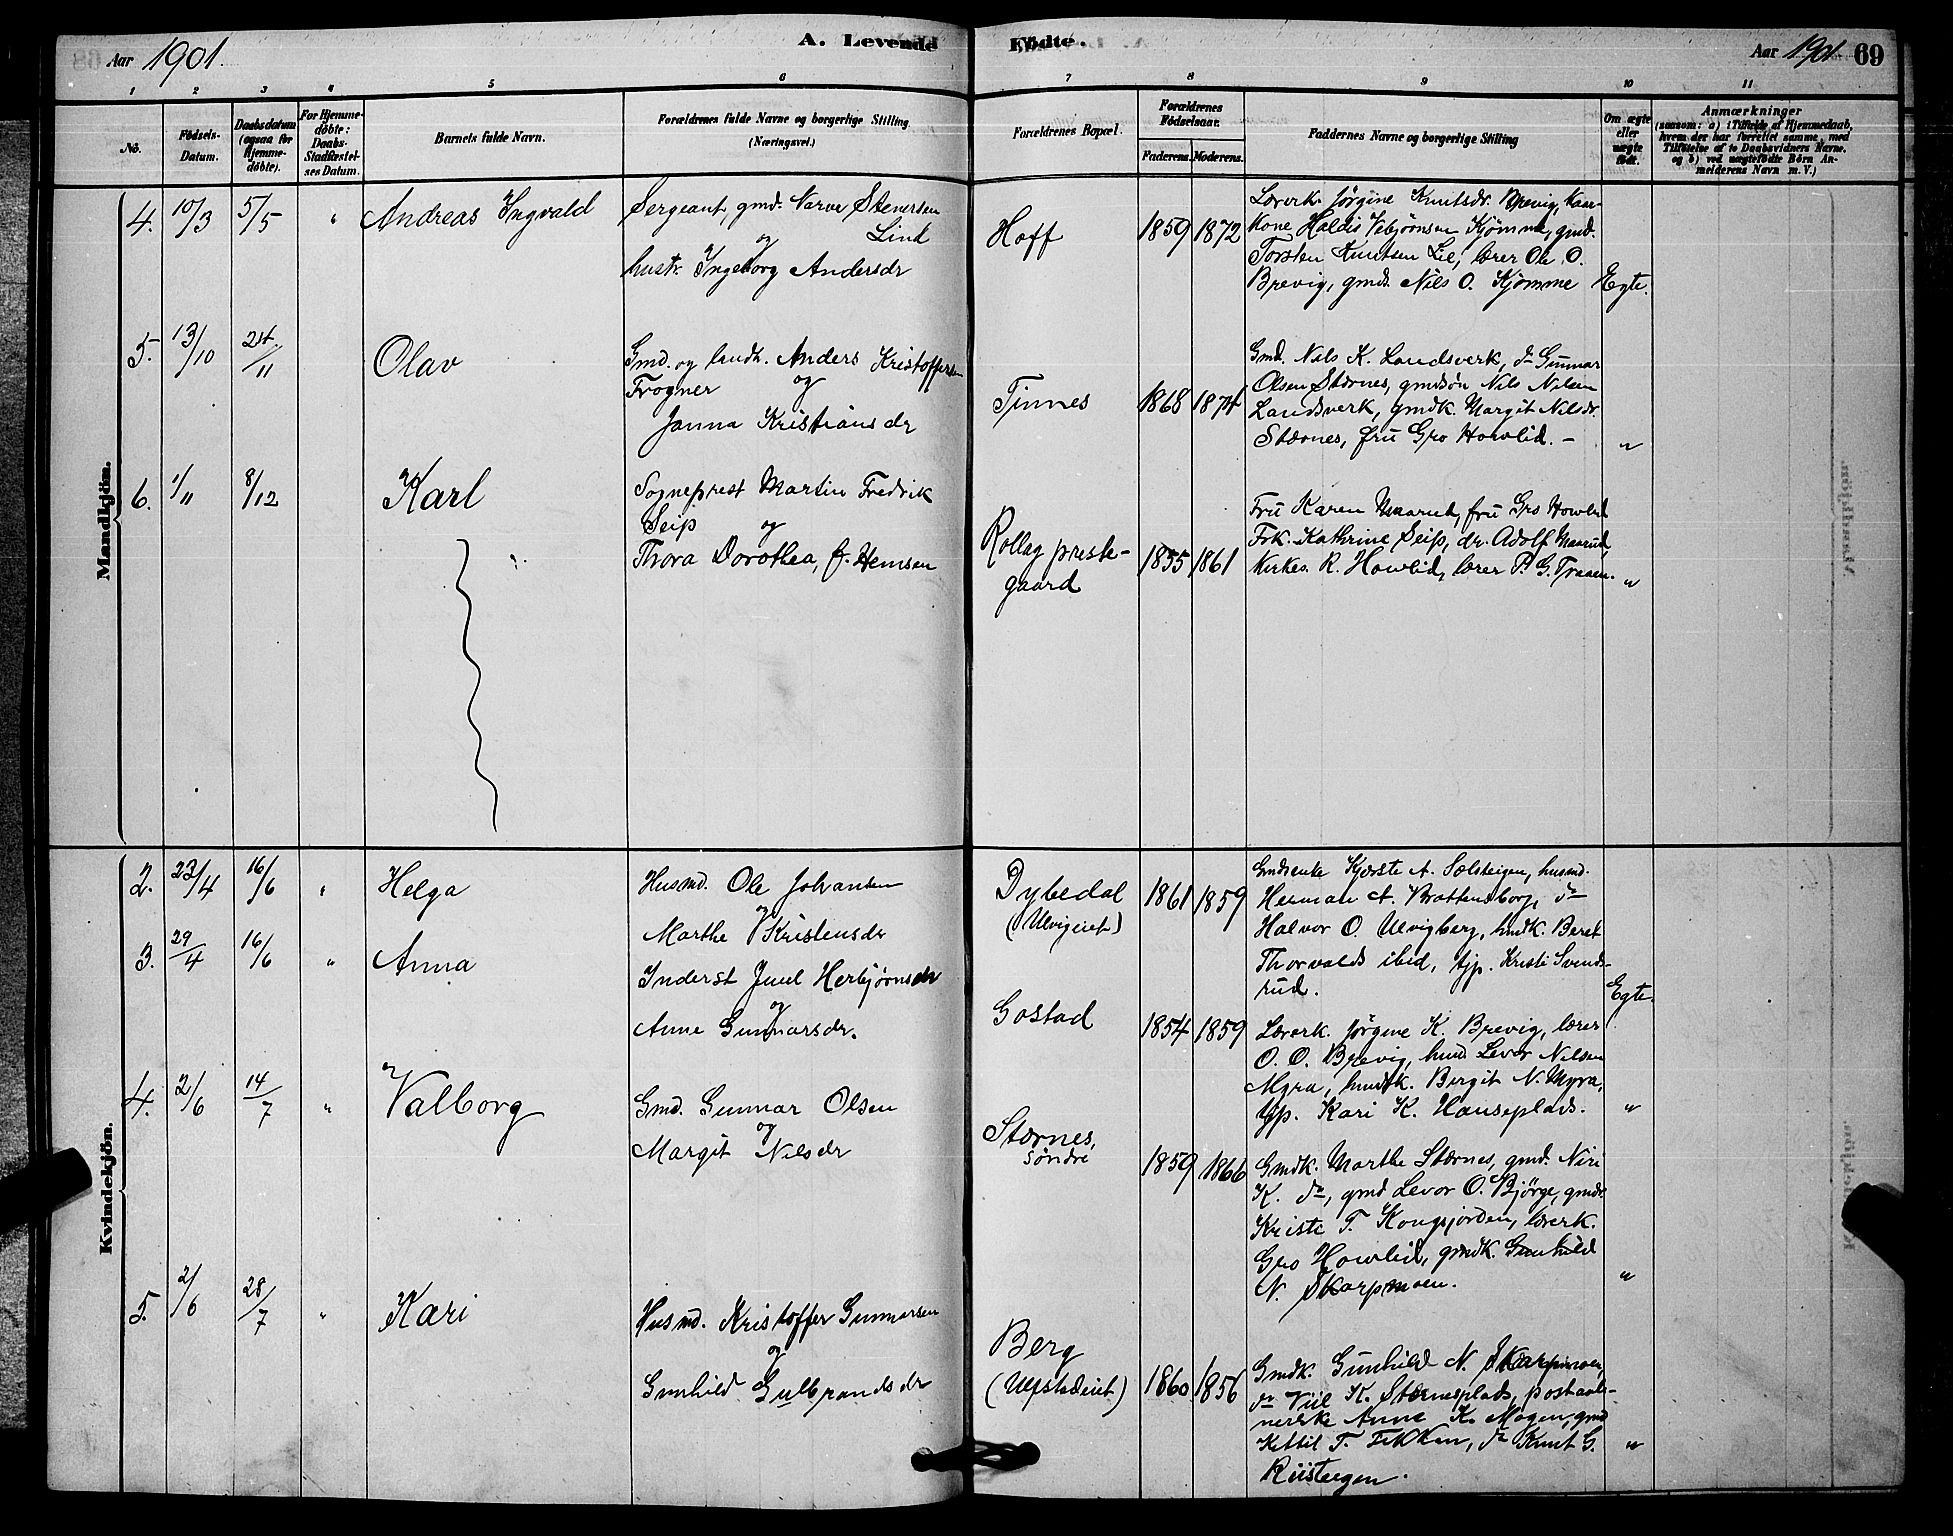 Aar 1901.
A. Levende
Fødte.
Aar 1901.
69
1 2 3 4 5 6 7 8 9 10 11
No.
Fødsels-
Datum.
Daabsdatum
(ogsaa for
Hjemme-
døbte).
For Hjemme-
døbte:
Daabs-
Stadfæstel-
ses Datum.
Barnets fulde Navn.
Forældrenes fulde Navne og borgerlige Stilling
(Næringsvei.)
Forældrenes Bopæl.
Forældrenes
Fødselsaar.
Faderens.
Moderens.
Faddernes Navne og borgerlige Stilling
Om ægte
eller
uægte
født.
Anmærkninger
(saasom: a) i Tilfælde af Hjemmedaab,
hvem der har forrettet samme, med
Tilføielse af to Daabsvidners Navne,
og b) ved uægtefødte Børn An-
melderens Navn m. V.)
Mandkjøn.
4. 10/3 5/5 " Andreas Ingvald
Sergeant, gmd. Narve Stenersen
og Lind
hustr. Ingeborg Andersdr
Hoff 1859 1872
Lærerk. Jørgine Knutsdr. Brevig,
kone Haldis Vebjønsen Kjømme, gmd.
Torsten Knutsen Lie, lærer Ole O.
Brevig, gmd. Nils O. Kjømme Egte.
5. 13/10 24/11 Olav
Gmd. og landh. Anders Kristoffersen
Frogner og
Janna Kristiansdr
Tinnes 1868 1874
Gmd. Nils K. Landsverk, do Gunnar
Olsen Stærnes, gmdsøn Nils Nilsen
Landsverk, gmdk. Margit Nilsdr.
Stærnes, fru Gro Howlid. – "
6. 1/11 8/12 Karl
Sogneprest Martin Fredrik
Seip og
Thora Dorothea, f. Hemsen
Rollag preste-
gaard 1855 1861
Fru Karen Maarud, fru Gro Howlid
Frk. Kathrine Seip, dr. Adolf Maarud,
Kirkes. R. Howlid, lærer P. G. Traaen. "
Kvindekjøn.
2. 23/4 16/6 " Helga
Husmd. Ole Johansen
og
Marthe Kristensdr
Dybedal
(Ulvigeiet) 1861 1859
Gmdenke Kjerste A. Sælsteigen, husmd.
Herman A. Brattensborg, do
Halvor O. Ulvigberg, hmdk. Beret
Thorvalds ibid, tjp. Kristi Svends-
rud. Egte.
3. 29/4 16/6 " Anna
Inderst Juul Herbjørnsdr
og
Anne Gunnarsdr.
Gostad 1854 1859
Lærerk. Jørgine K. Brevig, lærer
O. O. Brevig, husmd Levor Nilsen
Myra, hmdk. Bergit N. Myra,
tjp. Kari K. Hanseplads. "
4. 2/6 14/7 " Valborg
Gmd. Gunnar Olsen
og
Margit Nilsdr
Stærnes,
søndre 1859 1866
Gmdk. Marthe Stærnes, gmd. Niri
K. do, gmd Levor O. Bjørge, gmdk
Kristi T. Kongsjorden, lærerk.
Gro Howlid, gmdk. Gunhild
N. Skarpmoen. "
5. 2/6 28/7 " Kari
Husmd. Kristoffer Gunnarsen
og
Gunhild Gulbrandsdr
Berg
(Ulfstadeiet) 1860 1856
Gmdk. Gunhild N. Skarpmoen,
do Viil K. Stærnesplads, postaab-
nerske Anne K. Mogen, gmd
Kittil T. Fekken, do Knut G.
Riisteigen. "